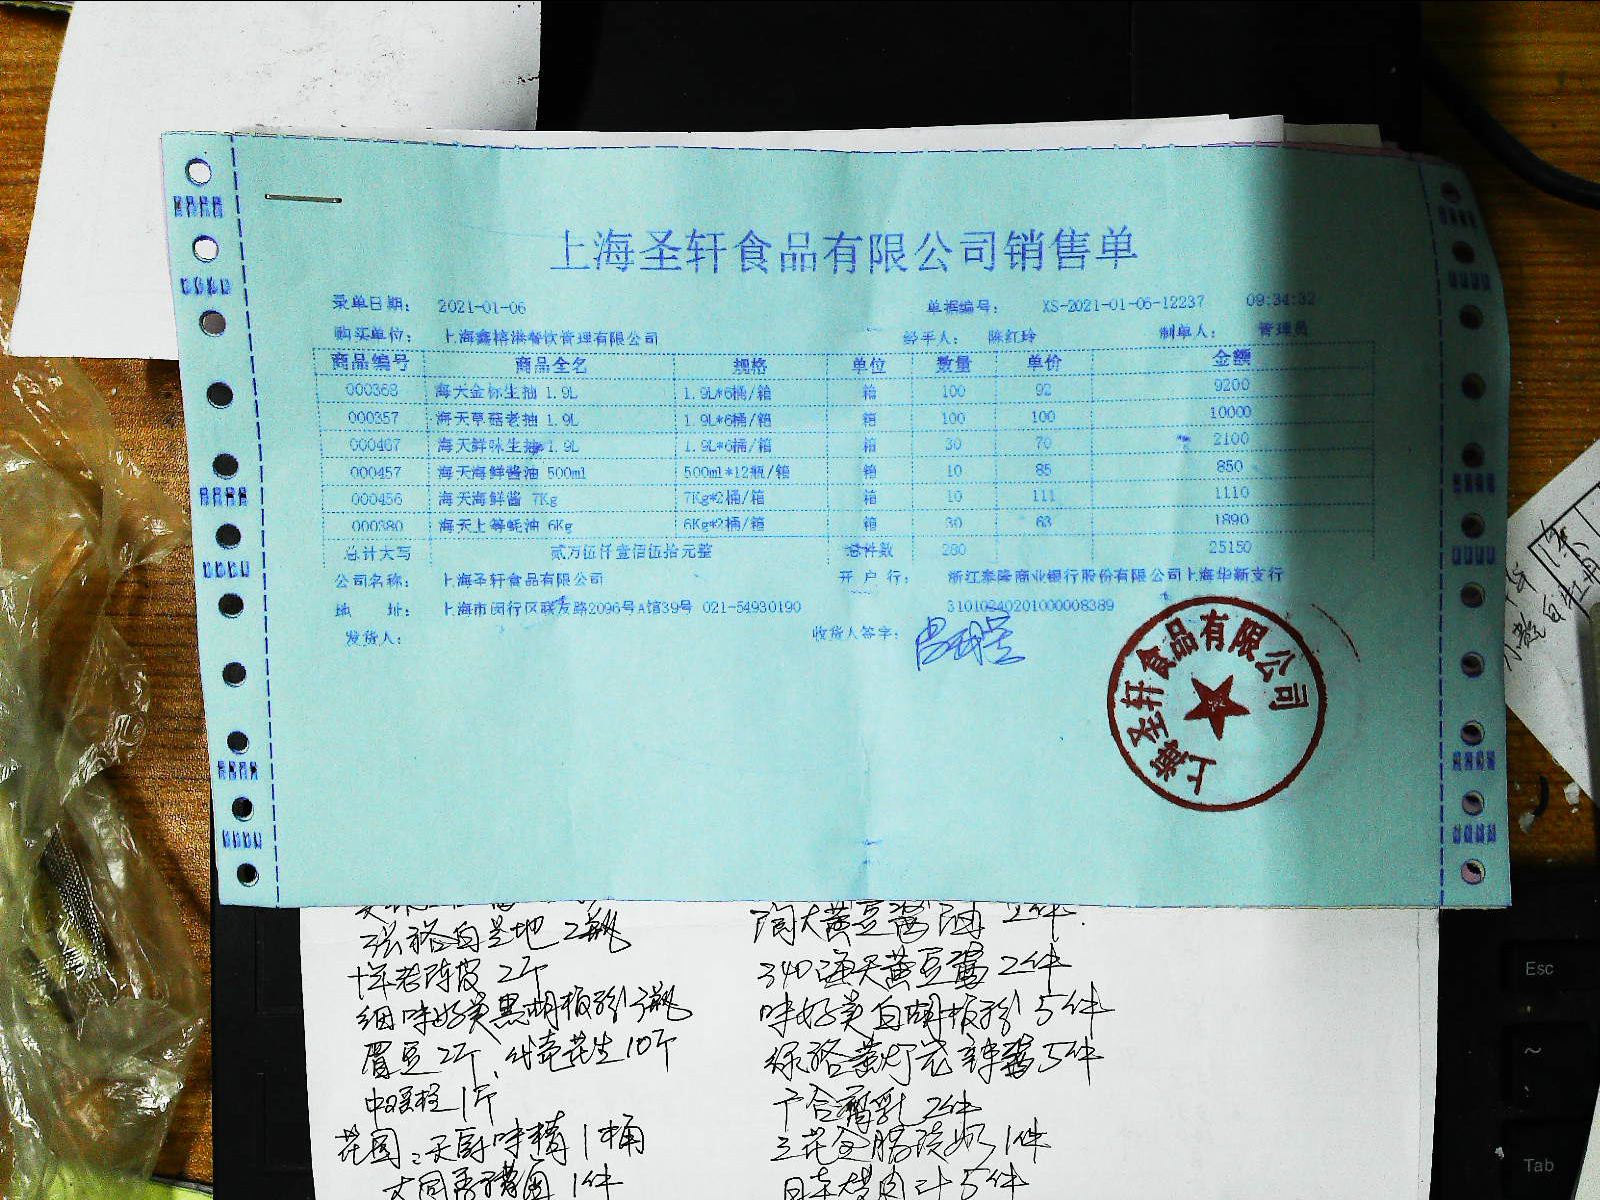 上海圣轩食品有限公司销售单
录单日期： 2021-01-06 单据编号： XS-2021-01-06-12237 09:34:32
购买单位： 上海鑫榕洪餐饮管理有限公司 经手人： 陈红玲 制单人： 管理员
商品编号 商品全名 规格 单位 数量 单价 金额
000368 海天金标生抽 1.9L 1.9L*6桶/箱 箱 100 92 9200
000357 海天草菇老抽 1.9L 1.9L*6桶/箱 箱 100 100 10000
000467 海天鲜味生抽 1.9L 1.9L*6桶/箱 箱 30 70 2100
000457 海天海鲜酱油 500ml 500ml*12瓶/箱 箱 10 85 850
000456 海天海鲜酱 7Kg 7Kg*2桶/箱 箱 10 111 1110
000380 海天上等蚝油 6Kg 6Kg*2桶/箱 箱 30 63 1890
总计大写 贰万伍仟壹佰伍拾元整 总件数 280 25150
公司名称： 上海圣轩食品有限公司 开 户 行： 浙江泰隆商业银行股份有限公司上海华新支行
地 址： 上海市闵行区联友路2096号A馆39号 021-54930190 31010240201000008389
发货人： 收货人签字：
上海圣轩食品有限公司
2瓶
淘大黄豆酱油 2件
十年老陈皮 2斤
340海天黄豆酱 2件
细味好美黑胡椒粉 3瓶
味好美白胡椒粉 5件
眉豆2斤、代壳花生10斤
黄灯笼辣酱5件
1斤
腐乳 2件
花园：天厨味精1桶
三花全脂淡奶1件
1件
日本烧肉汁5件
Esc
~
Tab